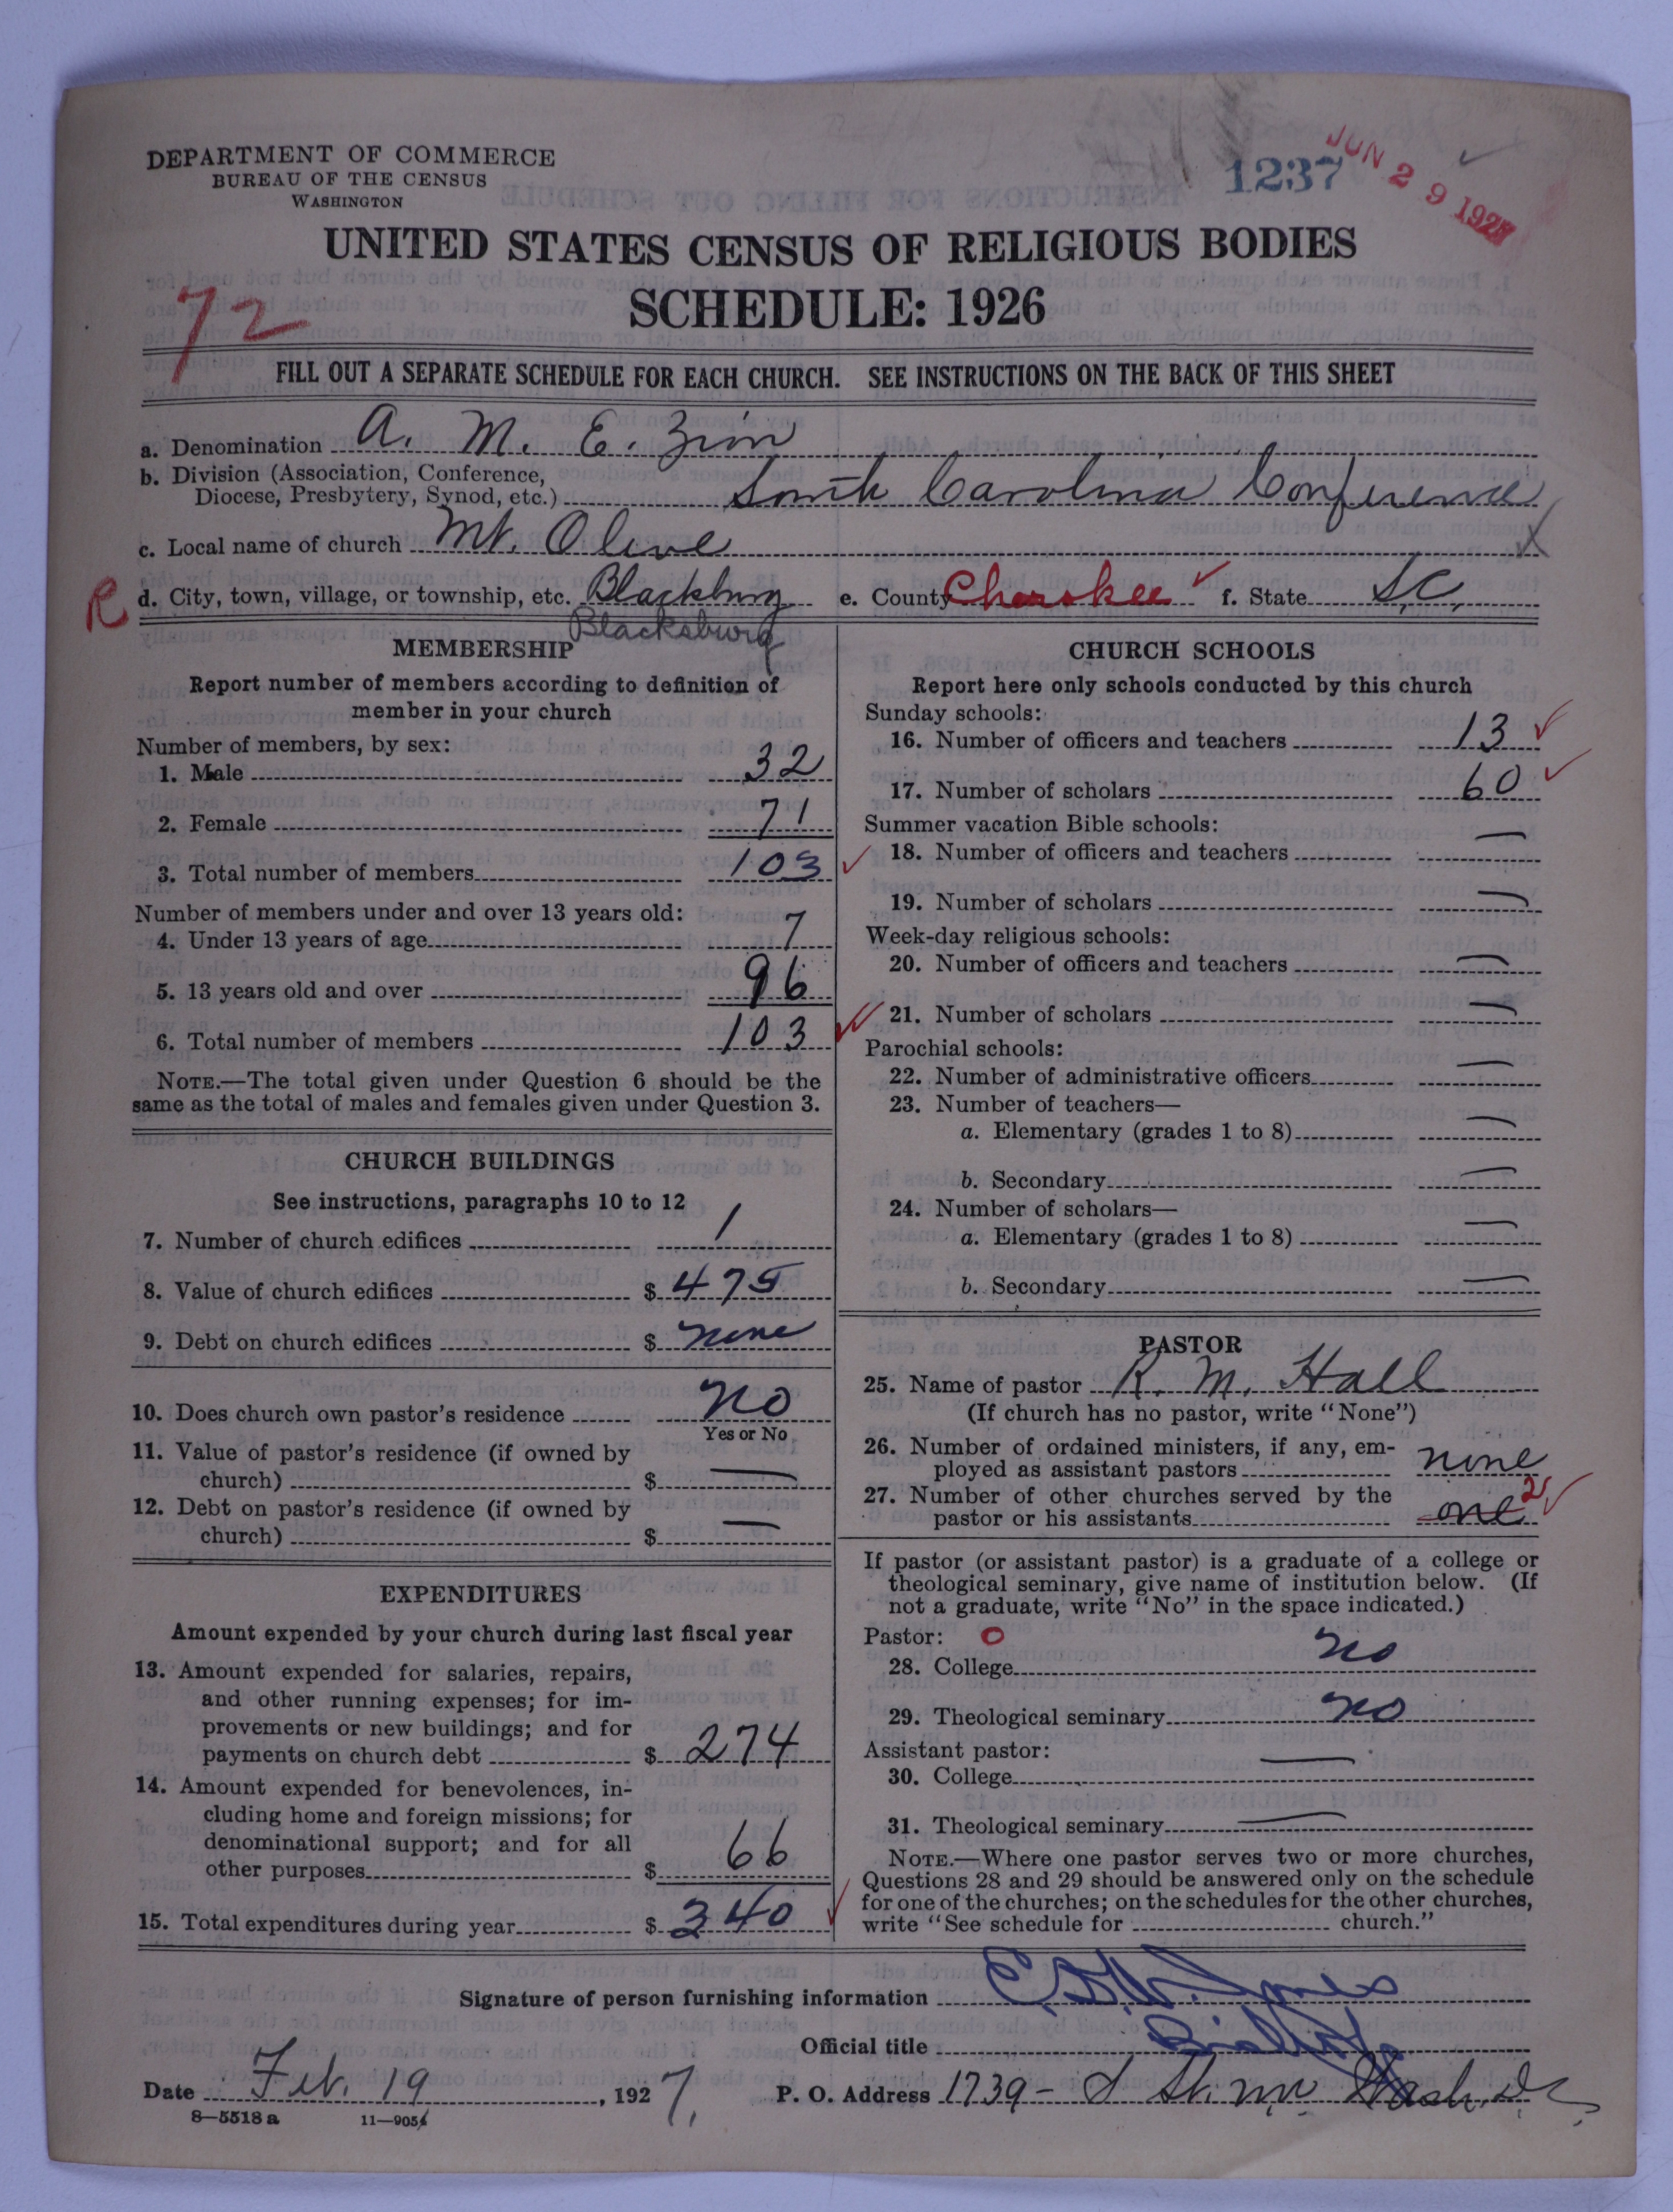 DEPARTMENT OF COMMERCE
BUREAU OF THE CENSUS
WASHINGTON
1237
JUN 29 1927
UNITED STATES CENSUS OF RELIGIOUS BODIES
SCHEDULE: 1926
72
FILL OUT A SEPARATE SCHEDULE FOR EACH CHURCH. SEE INSTRUCTIONS ON THE BACK OF THIS SHEET
a. Denomination A. M. E. Zion
b. Division (Association, Conference,
Diocese, Presbytery, Synod, etc.) South Carolina Conference
c. Local name of church Mt. Olive X
R d. City, town, village, or township, etc. Blacksburg e. County Cherokee ✓ f. State S.C.
Blacksburg
MEMBERSHIP
Report number of members according to definition of
member in your church
Number of members, by sex:
1. Male 32
2. Female 71
3. Total number of members 103 ✓
Number of members under and over 13 years old:
4. Under 13 years of age 7
5. 13 years old and over 96
6. Total number of members 103 ✓
NOTE.—The total given under Question 6 should be the
same as the total of males and females given under Question 3.
CHURCH BUILDINGS
See instructions, paragraphs 10 to 12
7. Number of church edifices 1
8. Value of church edifices $ 475
9. Debt on church edifices $ none
10. Does church own pastor's residence No
Yes or No
11. Value of pastor's residence (if owned by
church) $ —
12. Debt on pastor's residence (if owned by
church) $ —
EXPENDITURES
Amount expended by your church during last fiscal year
13. Amount expended for salaries, repairs,
and other running expenses; for im-
provements or new buildings; and for
payments on church debt $ 274
14. Amount expended for benevolences, in-
cluding home and foreign missions; for
denominational support; and for all
other purposes $ 66
15. Total expenditures during year $ 340 ✓
CHURCH SCHOOLS
Report here only schools conducted by this church
Sunday schools:
16. Number of officers and teachers 13 ✓
17. Number of scholars 60 ✓
Summer vacation Bible schools:
18. Number of officers and teachers —
19. Number of scholars —
Week-day religious schools:
20. Number of officers and teachers —
21. Number of scholars —
Parochial schools:
22. Number of administrative officers —
23. Number of teachers—
a. Elementary (grades 1 to 8) —
b. Secondary —
24. Number of scholars—
a. Elementary (grades 1 to 8) —
b. Secondary —
PASTOR
25. Name of pastor R. M. Hall
(If church has no pastor, write "None")
26. Number of ordained ministers, if any, em-
ployed as assistant pastors none
27. Number of other churches served by the
pastor or his assistants one 2 ✓
If pastor (or assistant pastor) is a graduate of a college or
theological seminary, give name of institution below. (If
not a graduate, write "No" in the space indicated.)
Pastor: O
28. College no
29. Theological seminary no
Assistant pastor:
30. College —
31. Theological seminary —
NOTE.—Where one pastor serves two or more churches,
Questions 28 and 29 should be answered only on the schedule
for one of the churches; on the schedules for the other churches,
write "See schedule for church."
Signature of person furnishing information E. D. W. Jones
Official title Bishop
Date Feb. 19, 1927. P. O. Address 1739 - S St. NW Wash. D.C.
8—5518 a 11—9054